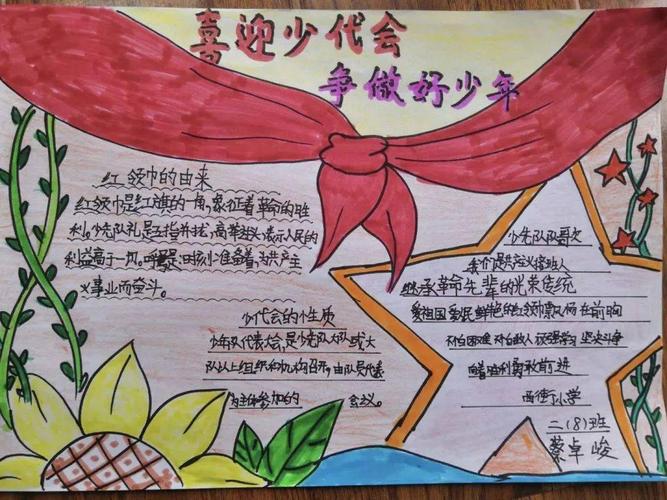 喜迎少代会
争做好少年
红领巾的由来
红领巾是红旗的一角，象征着革命的胜
利。少先队礼是五指并拢，高举头，表示人民的
利益高于一切。呼号是:时刻准备着，为共产主
义事业而奋斗。
少代会的性质
少年队代表大会，是少先队大队或大
队以上组织和机构召开，由队员代表
为主体参加的 会议。
少先队队歌
我们是共产主义接班人
继承革命先辈的光荣传统
爱祖国 爱人民 鲜艳的红领巾飘扬在前胸
不怕困难 不怕敌人 顽强学习 坚决斗争
向着胜利勇敢前进
西街小学
二(8)班
蔡卓峻